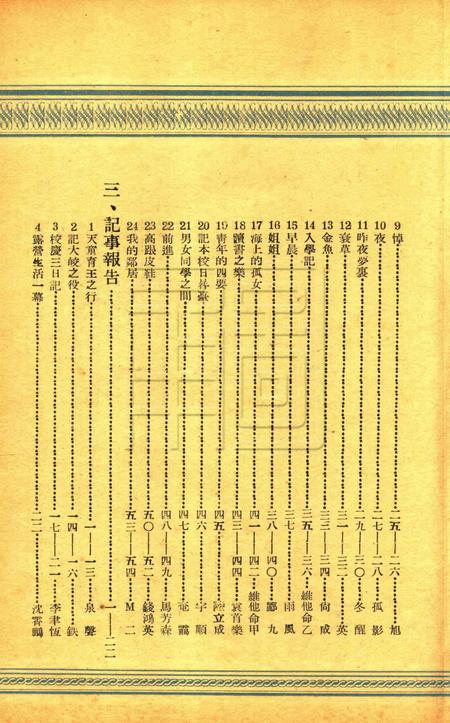 9 悼 二五——二六 旭
10 夜 二七——二八 孤影
11 昨夜夢裏 二九——三〇 冬醒
12 衰草 三一——三二 英
13 金魚 三三——三四 尙成
14 入學記 三五——三六 維他命乙
15 早晨 三七 雨風
16 姐姐 三八——四〇 酈九
17 海上的孤女 四一——四二 維他命甲
18 讀書之樂 四三——四四 袁首樂
19 靑年的四要 四五 陸立成
20 記本校日 四六 宇順
21 男女同學之間 四七 電靄
22 前進 四八——四九 馬芳森
23 高跟皮鞋 五〇——五二 錢鴻英
24 我的鄰居 五三——五四 M二
三、記事報告 一——二二
1 天童育王之行 一——一三 泉聲
2 記大皎之役 一四——一六 鉄
3 校慶三日記 一七——二一 李聿恆
4 露營生活一幕 二二 沈霄鶚